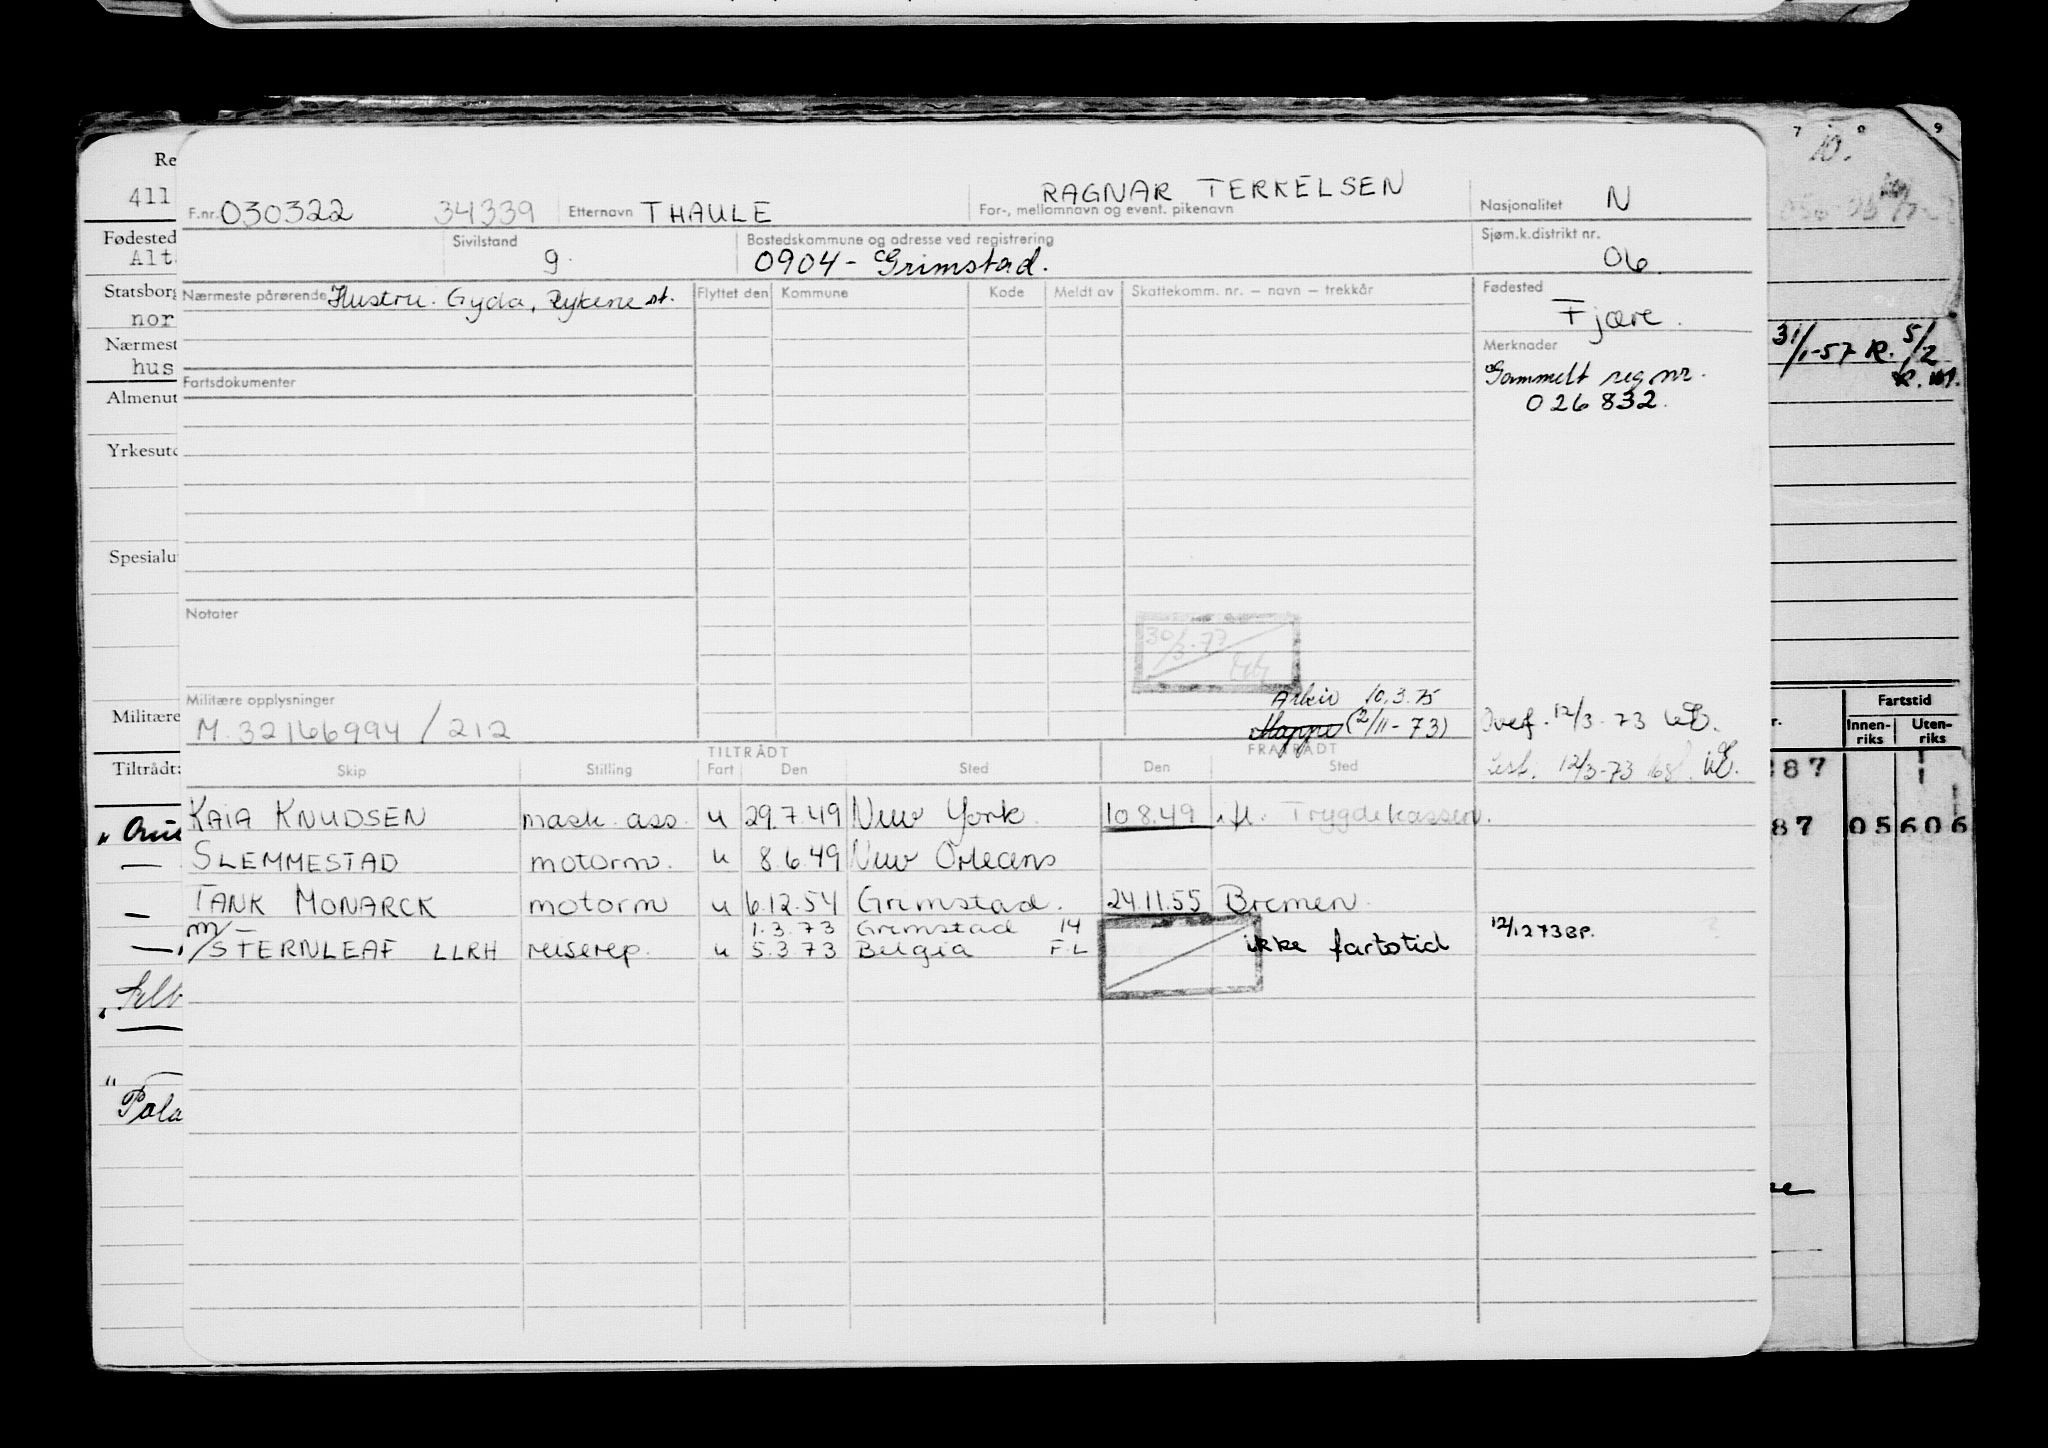 F.nr. 030322 34339 Etternavn THAULE RAGNAR TERKELSEN
For-, mellomnavn og event. pikenavn
Nasjonalitet N
Sivilstand g.
Bostedskommune og adresse ved registrering
0904 - Grimstad.
Sjøm.k.distrikt nr.
06
Nærmeste pårørende Hustru. Gyda, Rykene st.
Flyttet den Kommune Kode Meldt av Skattekomm. nr. – navn – trekkår
Fødested
Fjære.
Merknader
Gammelt reg nr.
026832.
Fartsdokumenter
Notater
30/3-77
Militære opplysninger
M. 32166994/212
Arkiv 10.3.75
Mappe (2/11-73)
Overf. 12/3-73
12/3-73
TILTRÅDT FRATRÅDT
Skip Stilling Fart Den Sted Den Sted
KAIA KNUDSEN mask. ass. u 29.7.49 New York. 10 8.49 i.fl. Trygdekassen.
SLEMMESTAD motorm. u 8.6.49 New Orleans
TANK MONARCK motorm u 6.12.54 Grimstad. 24.11.55 Bremen.
1.3.73 Grimstad 14
m/STERNLEAF LLRH reiserep. u 5.3 73 Belgia F.L ikke fartstid 12/12 73 BP.
Re
411
Fødested
Alt
Statsborg
nor
Nærmest
hus
Almenut
Yrkesut
Spesialu
Militære
Tiltrådt:
Pola
7 8 9
10.
31/1-57 R. 5/2
Fartstid
Innen-riks Uten-riks
287
87 05 606